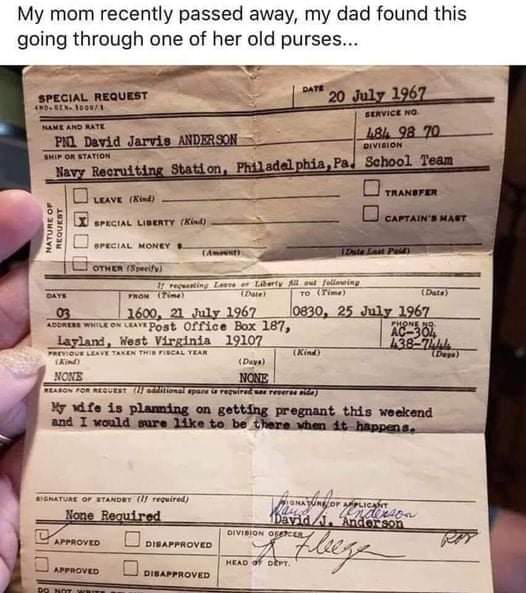 My mom recently passed away, my dad found this
going through one of her old purses...
SPECIAL REQUEST
DATE 20 July 1967
SERVICE NO.
NAME AND RATE
PN1 David Jarvis ANDERSON
484 98 70
SHIP OR STATION
DIVISION
Navy Recruiting Station, Philadelphia, Pa. School Team
NATURE OF REQUEST
LEAVE (Kind)
TRANSFER
X SPECIAL LIBERTY (Kind)
CAPTAIN'S MAST
SPECIAL MONEY $
(Amount)
(Date Last Paid)
OTHER (Specify)
If requesting Leave or Liberty fill out following
DAYS
FROM (Time) (Date)
TO (Time) (Date)
03
1600, 21 July 1967
0830, 25 July 1967
ADDRESS WHILE ON LEAVE Post Office Box 187,
PHONE NO.
AC-304
Layland, West Virginia 19107
438-7444
PREVIOUS LEAVE TAKEN THIS FISCAL YEAR
(Kind) (Days) (Kind) (Days)
NONE NONE
REASON FOR REQUEST (If additional space is required use reverse side)
My wife is planning on getting pregnant this weekend
and I would sure like to be there when it happens.
SIGNATURE OF STANDBY (If required)
SIGNATURE OF APPLICANT
None Required
David J. Anderson
David J. Anderson
APPROVED DISAPPROVED
DIVISION OFFICER
APPROVED DISAPPROVED
HEAD OF DEPT.
DO NOT WRITE